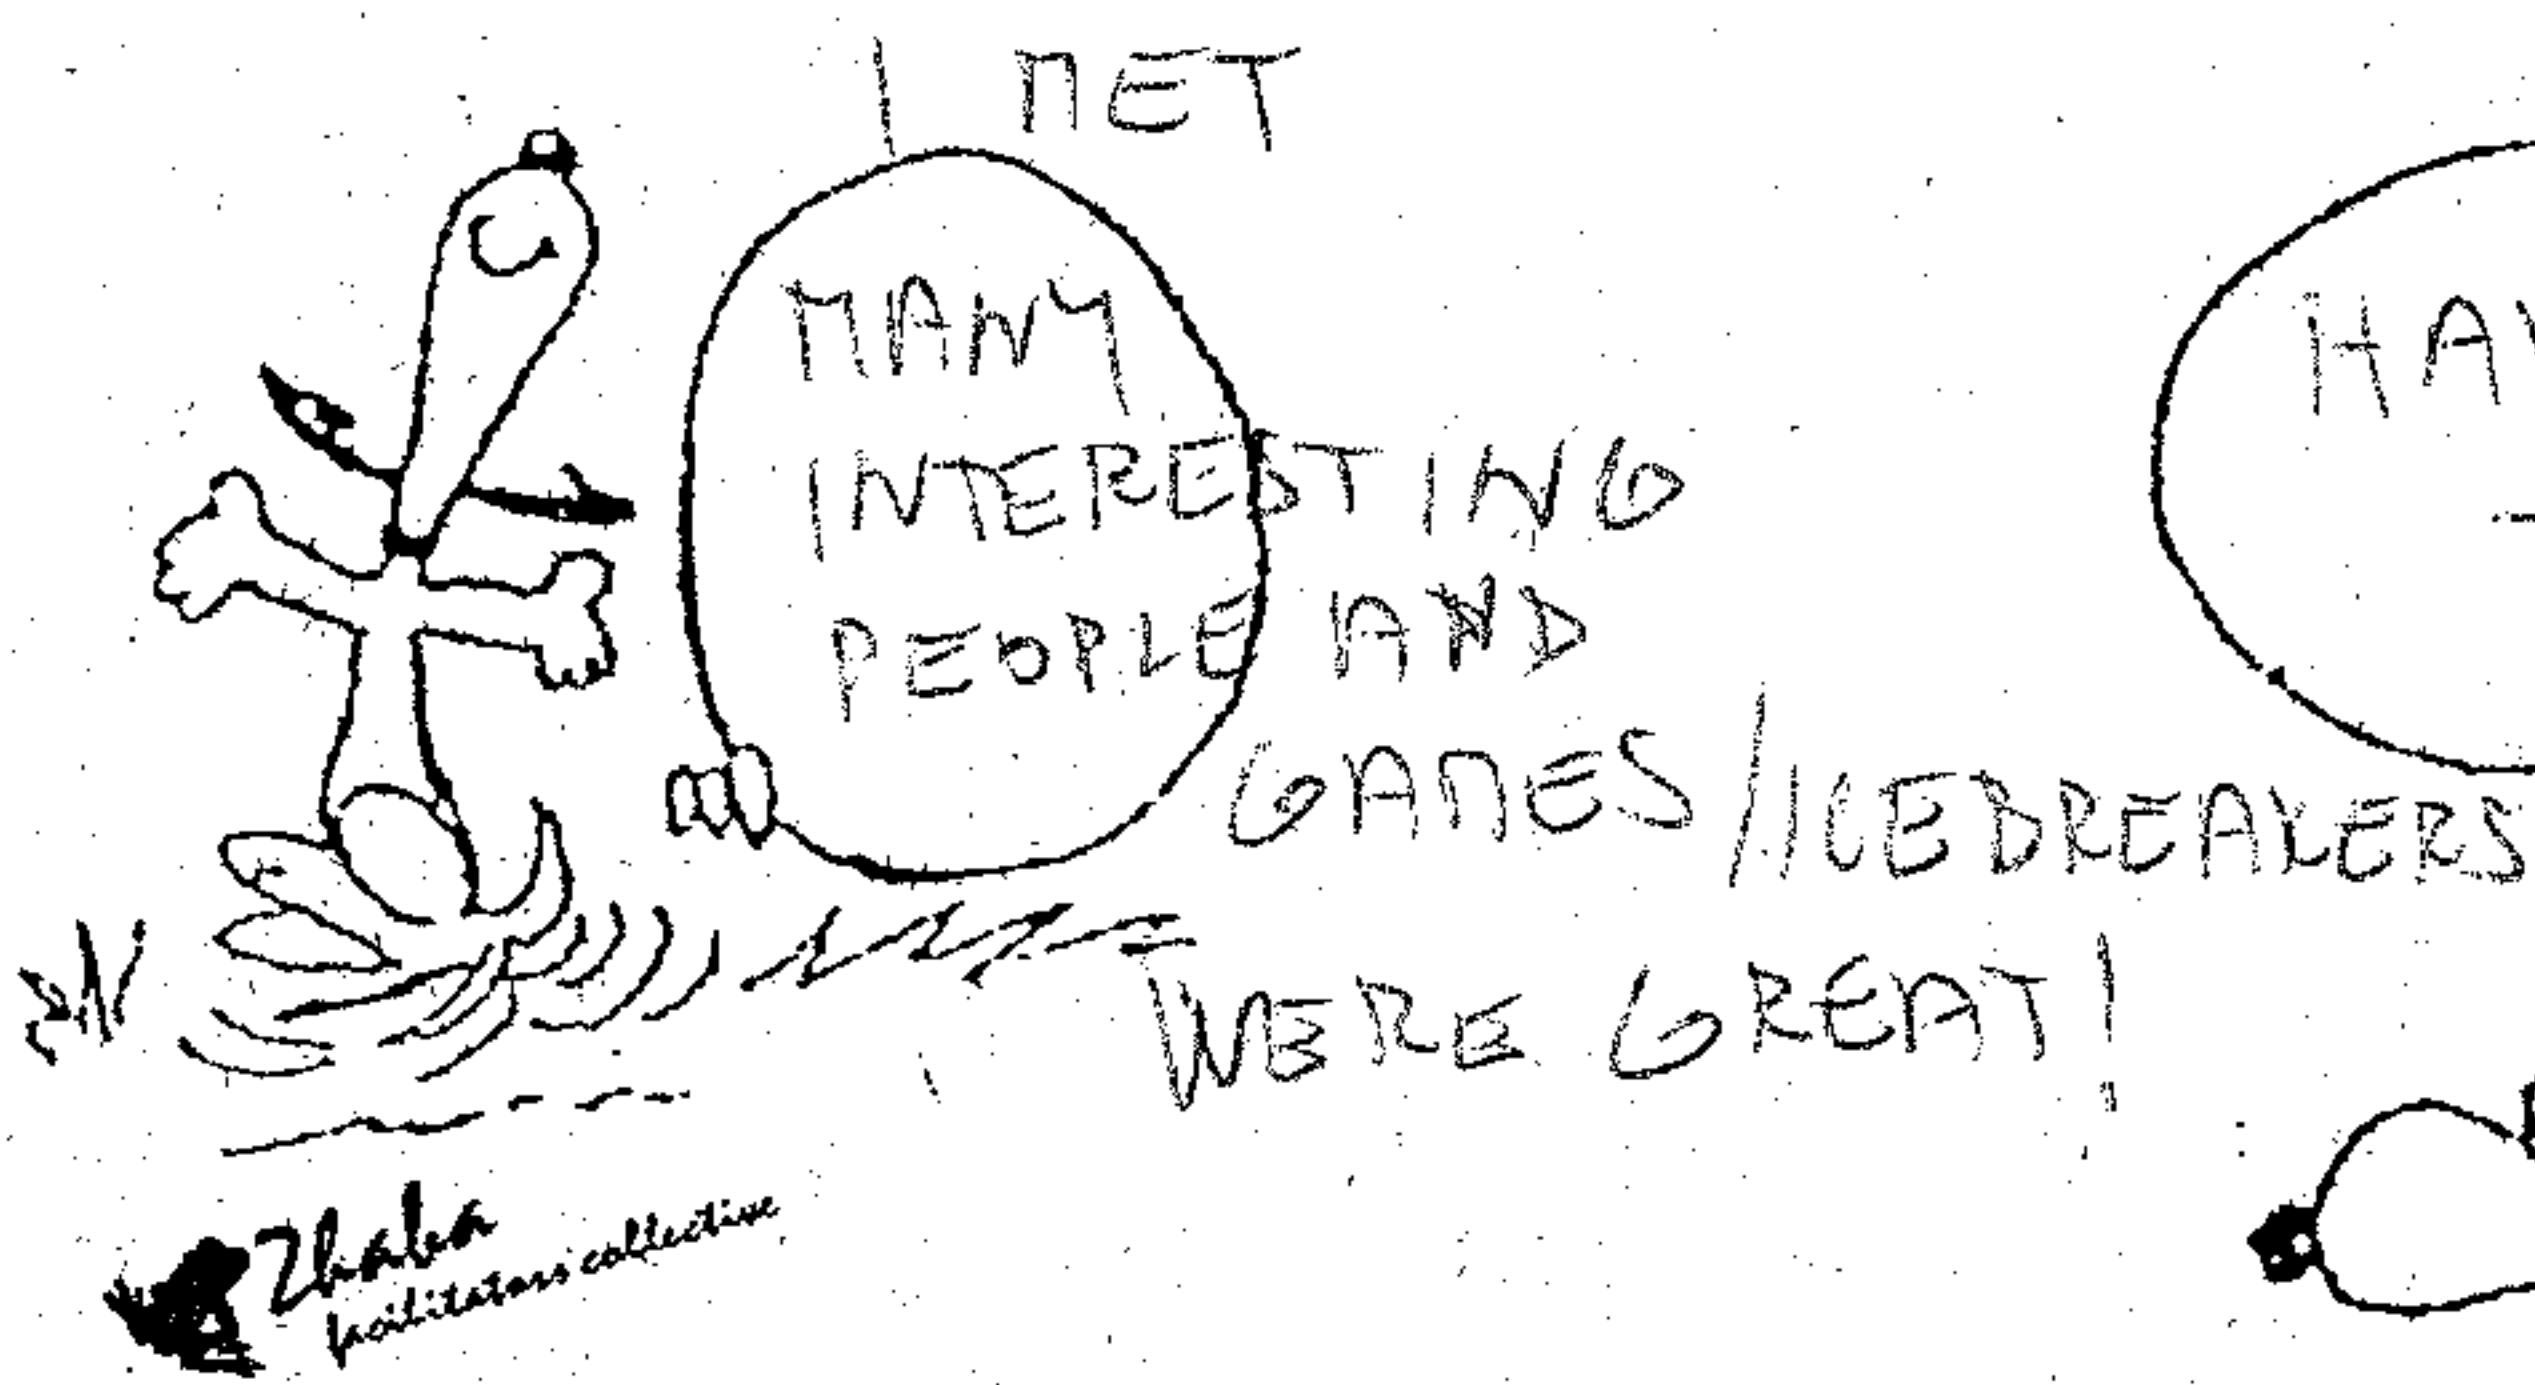 I MET
MANY
INTERESTING
PEOPLE AND
GAMES / ICEBREAKERS
WERE GREAT!
HAV
Zhaba
facilitators collective